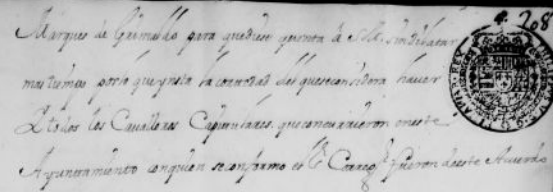 208
Marques de Grimaldo para que diese quenta á S.M. sin dilatar
mas tiempo por lo que ynsta la cortedad del que se considera haver
Y todos los Cavalleros Capitulares que concurrieron en este
Ayuntamiento con quien se conformo el Sr. Correg.r fueron de este Acuerdo